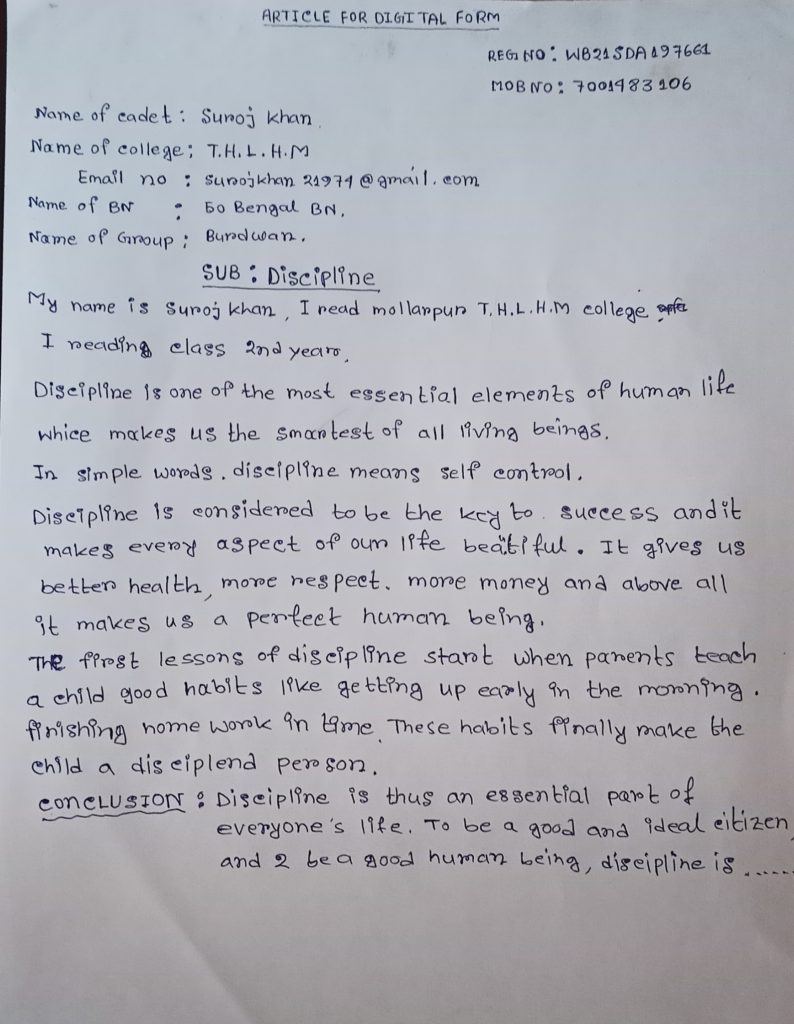 ARTICLE FOR DIGITAL FORM
REG NO: WB21SDA197661
MOB NO: 7001983106
Name of cadet: Suroj khan
Name of college: T.H.L.H.M
Email no : surojkhan21971@gmail.com
Name of BN : 50 Bengal BN.
Name of Group: Burdwan.
SUB: Discipline
My name is Suroj khan, I read mollarpur T.H.L.H.M college
I reading class 2nd years.
Discipline is one of the most essential elements of human life
whice makes us the smartest of all living beings.
In simple words. discipline means self control.
Discipline is considered to be the key to success and it
makes every aspect of our life beatiful. It gives us
better health, more respect. more money and above all
it makes us a perfect human being.
The first lessons of discipline start when parents teach
a child good habits like getting up early in the morning.
finishing home work in time. These habits finally make the
child a disciplend person.
CONCLUSION: Discipline is thus an essential part of
everyone's life. To be a good and ideal citizen,
and 2 be a good human being, discipline is ......